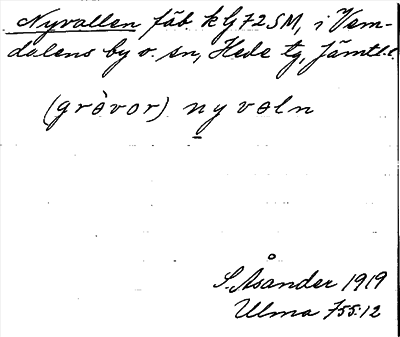 Nyvallen fäb. k G72SM, i Vem-
dalens by o. sn, Hede tg, Jämtl.l.
(grèvor) nyvəln
S. Åsander 1919
Ulma 755:12